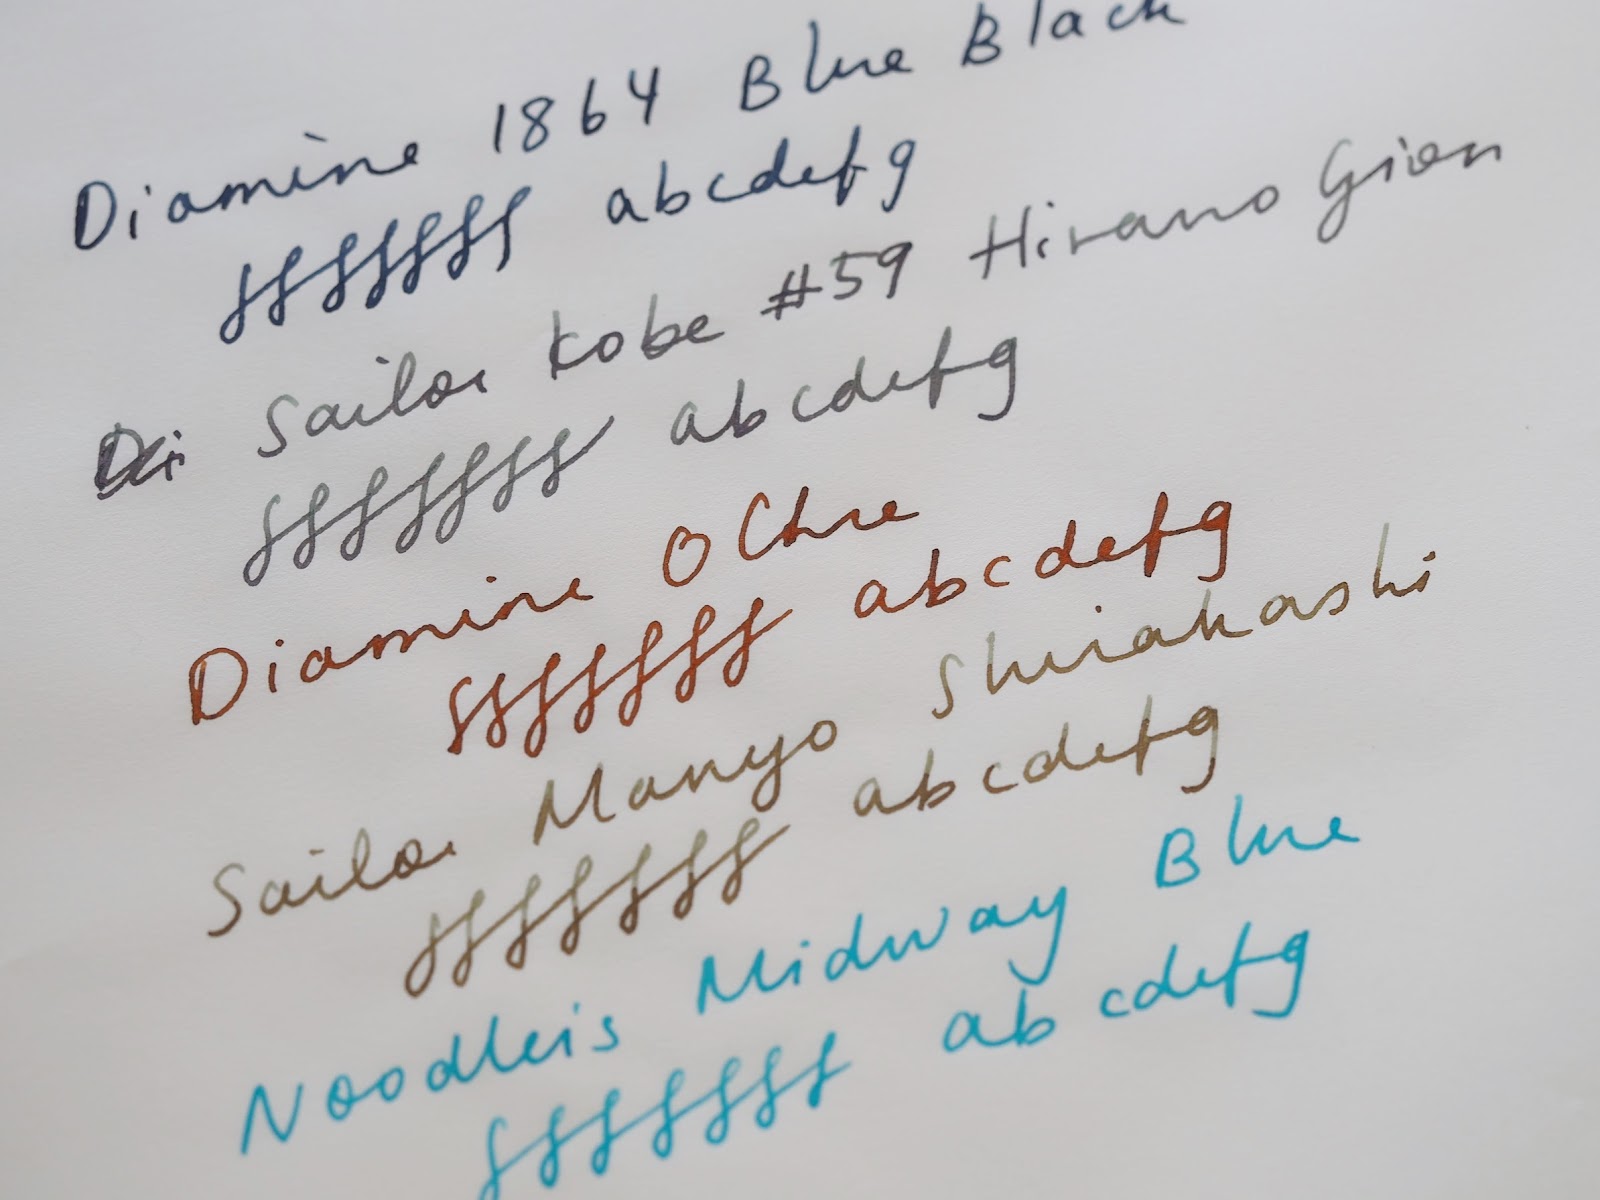 Diamine 1864 Blue Black
fffffff abcdefg
Di Sailor Kobe #59 Hirano Gion
fffffff abcdefg
Diamine Ochre
fffffff abcdefg
Sailor Manyo Shirakashi
fffffff abcdefg
Noodleis Midway Blue
fffffff abcdefg